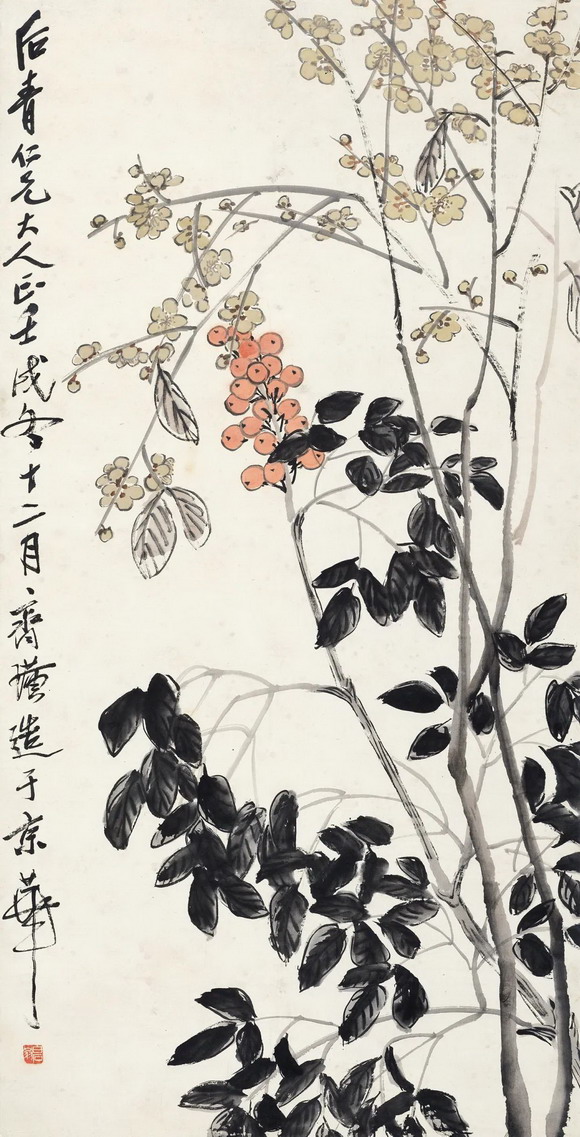 后青仁兄大人正壬戌冬十二月齊璜造于京華